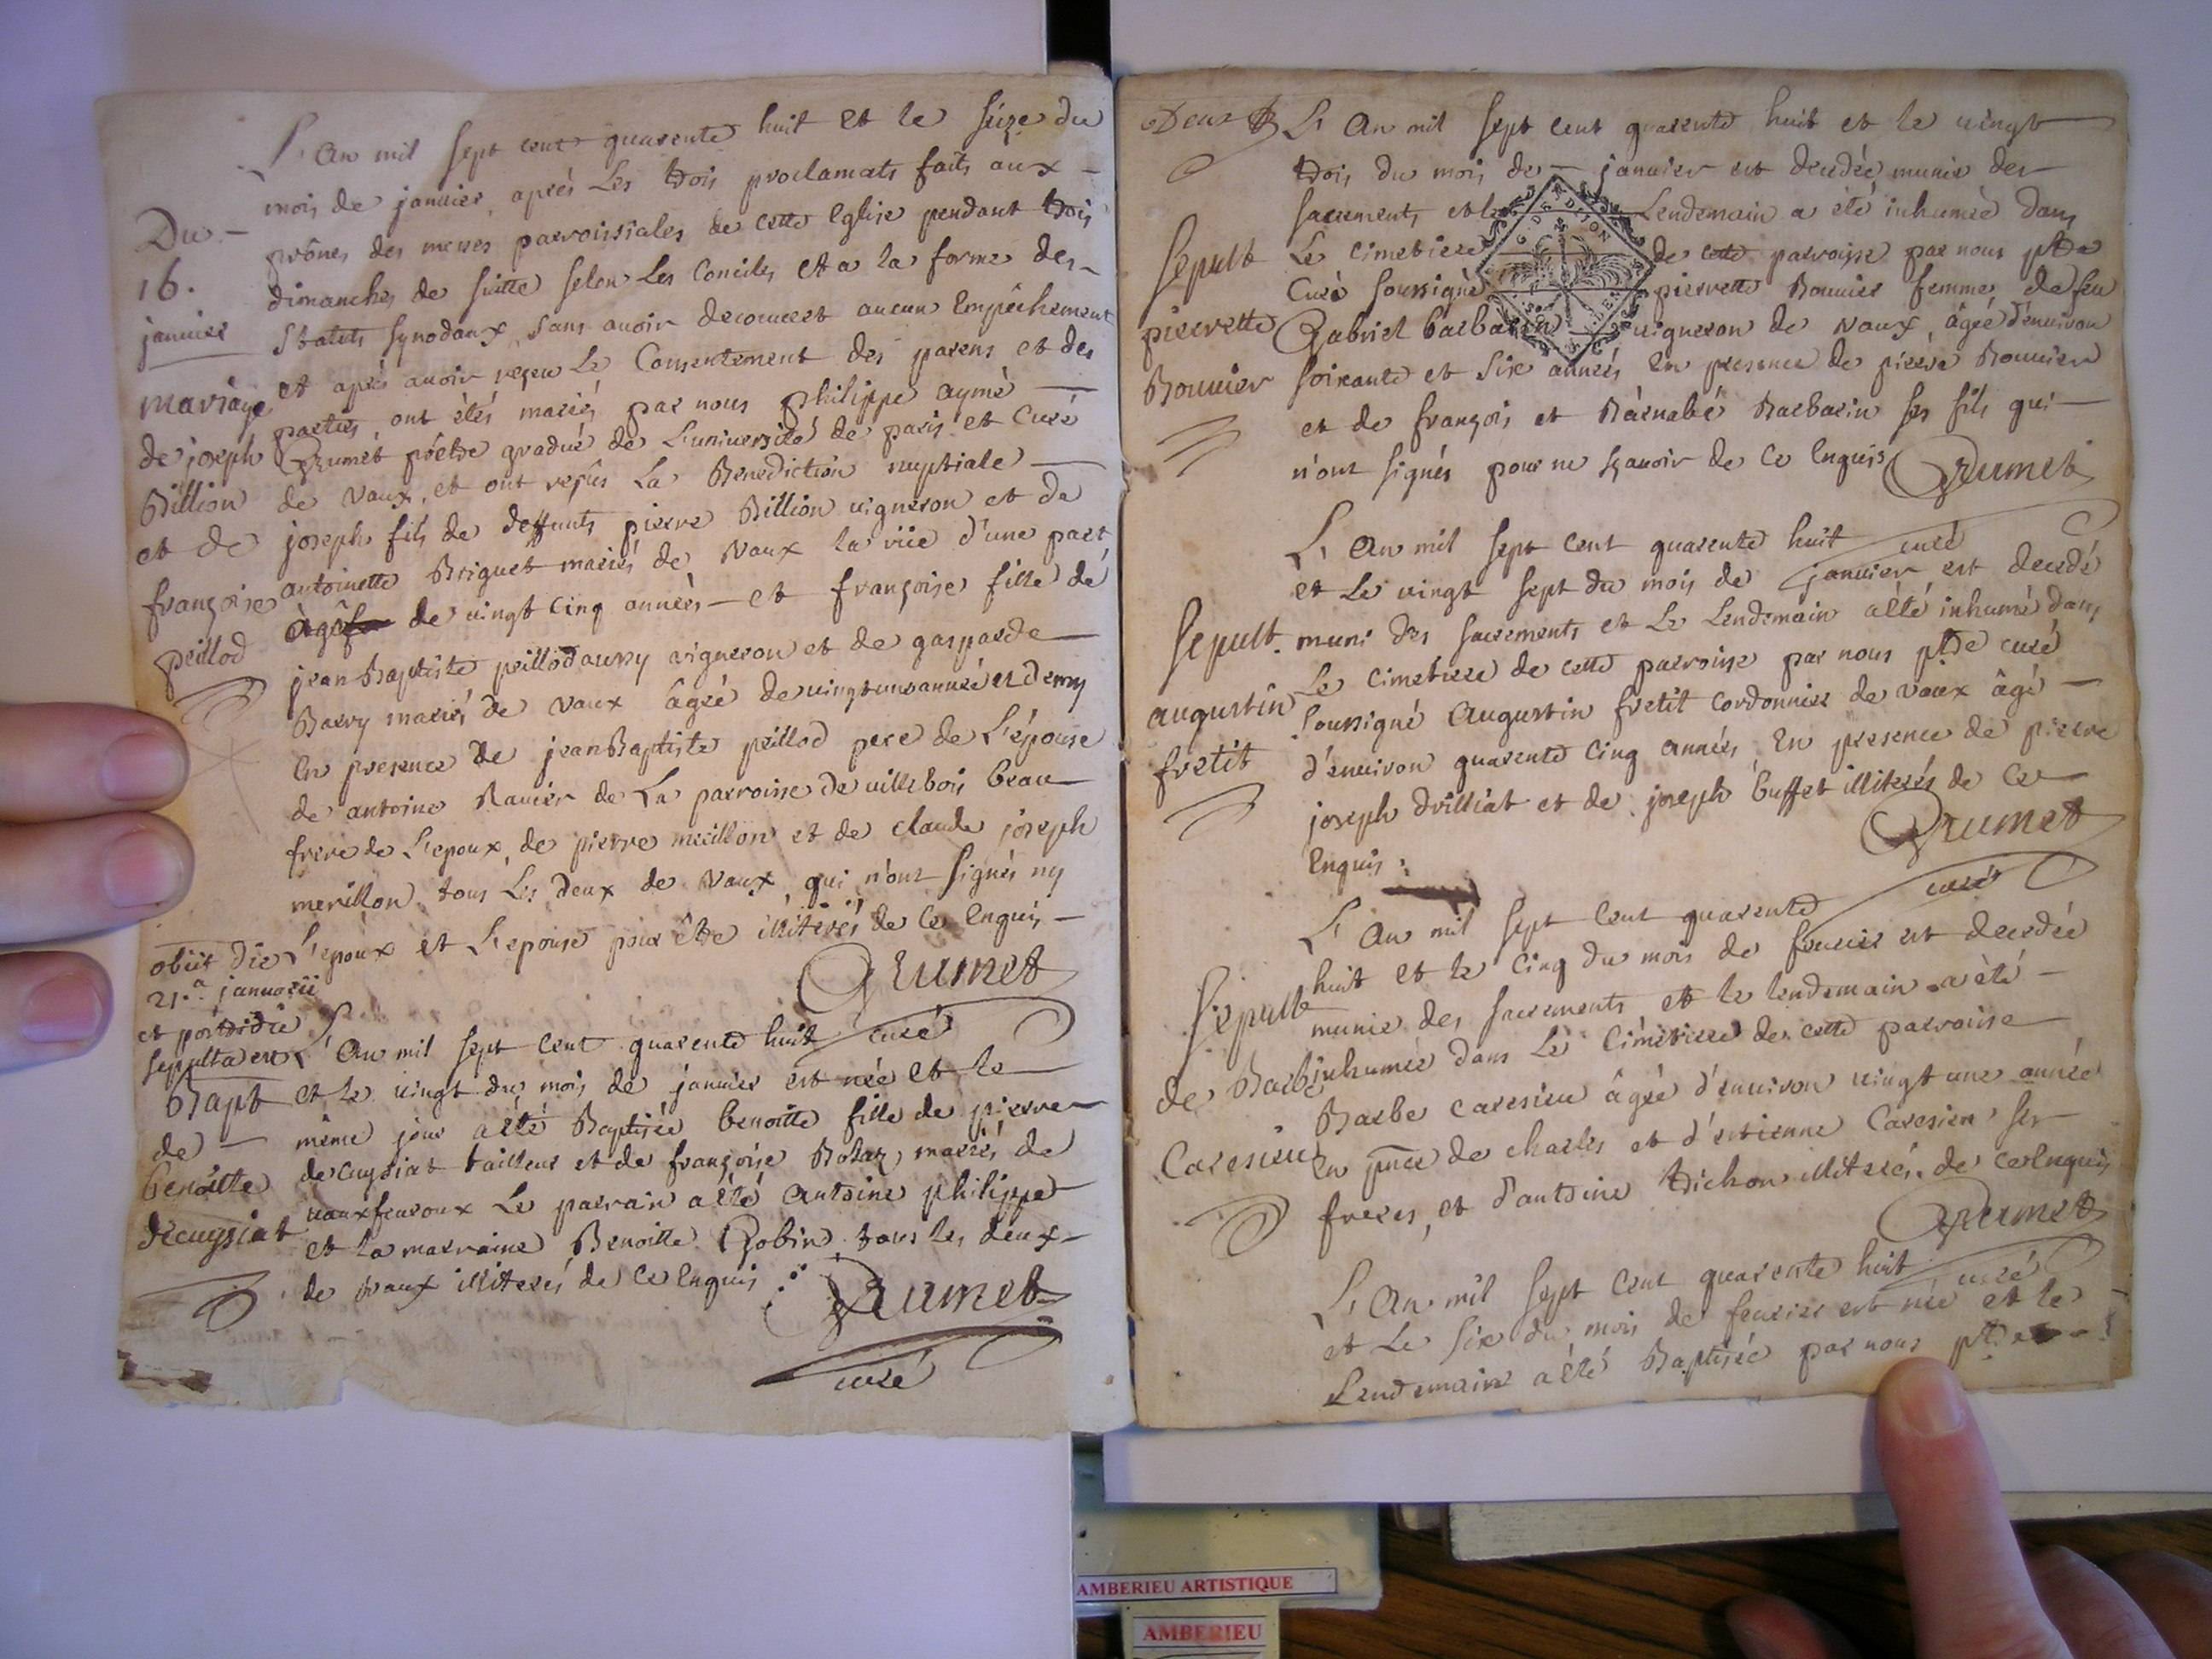 L'An mil sept cent quarente huit et le seize du
mois de janvier, aprés Les trois proclamats faits aux
Du
prônes des messes parroissiales de cette Eglise pendant trois
16.
dimanches de suitte selon Les Conciles et a la forme des
janvier
Statuts synodaux, sans avoir decouvert aucun Empêchement
et aprés avoir reçeu Le Consentement des parens et des
mariage
parties ont étés mariés par nous philippe aymé
de joseph
Grumet prêtre gradué de L'université de paris et Curé
Billion
de Vaux, et ont reçus La Benediction nuptiale
et de
joseph fils de deffunts pierre Billion vigneron et de
françoise
antoinette Briguet mariés de Vaux la viie d'une part
peillod
âgé de vingt cinq années et françoise fille de
jean Baptiste peillod aussy vigneron et de gasparde
Barry mariés de Vaux âgée de vingt une année et demy
En presence de jean Baptiste peillod pere de L'épouse
de antoine Ravier de La parroisse de villebois beau
frere de L'epoux, de pierre merillon et de claude joseph
merillon tous Les deux de Vaux qui n'ont signés ny
L'epoux et L'epouse pour être illiterés de Ce Enquis
obiit die
21.a januarii
et postridie
sepulta est
Grumet
curé
L'An mil sept Cent quarente huit
Bapt
et le vingt du mois de janvier est née et le
de
même jour a été Baptisée benoitte fille de pierre
benoitte
decuysiat tailleur et de françoise Bohaz mariés de
decuysiat
vauxfevroux Le parrain a été Antoine philippe
et la marraine Benoitte Gobin tous les deux
de Vaux illiterés de Ce Enquis
Grumet
curé
Deux
L'An mil sept cent quarente huit et le vingt
trois du mois de janvier est decedée munie des
sacrements et le Lendemain a été inhumée dans
Sepult
Le Cimetiere de cette parroisse par nous ptre
Curé soussigné pierrette Bouvier femme de feu
pierrette
Gabriel barbarin vigneron de Vaux, âgée d'environ
Bouvier
soixante et six années En presence de pierre Bouvier
et de françois et Barnabé Barbarin ses fils qui
n'ont signés pour ne sçavoir de Ce Enquis
Grumet
curé
L'An mil sept Cent quarente huit
et Le vingt sept du mois de janvier est decedé
Sepult.
muni des sacrements et Le Lendemain a été inhumé dans
Le Cimetiere de cette parroisse par nous ptre curé
augustin
soussigné Augustin fretit Cordonnier de Vaux âgé
fretit
d'environ quarente Cinq années En presence de pierre
joseph drilliat et de joseph buffet illiterés de Ce
Enquis
Grumet
curé
L'An mil sept Cent quarente
huit et le Cinq du mois de fevrier est decedée
Sepult
munie des sacrements et le lendemain a été
de Barbe
inhumée dans Le Cimetiere de cette parroisse
Barbe Caresieu âgée d'environ vingt une année
Caresieu
En pnce de charles et d'estienne Caresieu ses
freres, et d'antoine trichon illiterés de Ce Enquis
Grumet
curé
L'An mil sept Cent quarente huit
et Le six du mois de fevrier est née et le
Lendemain a été Baptisée par nous ptre
AMBERIEU ARTISTIQUE
AMBERIEU